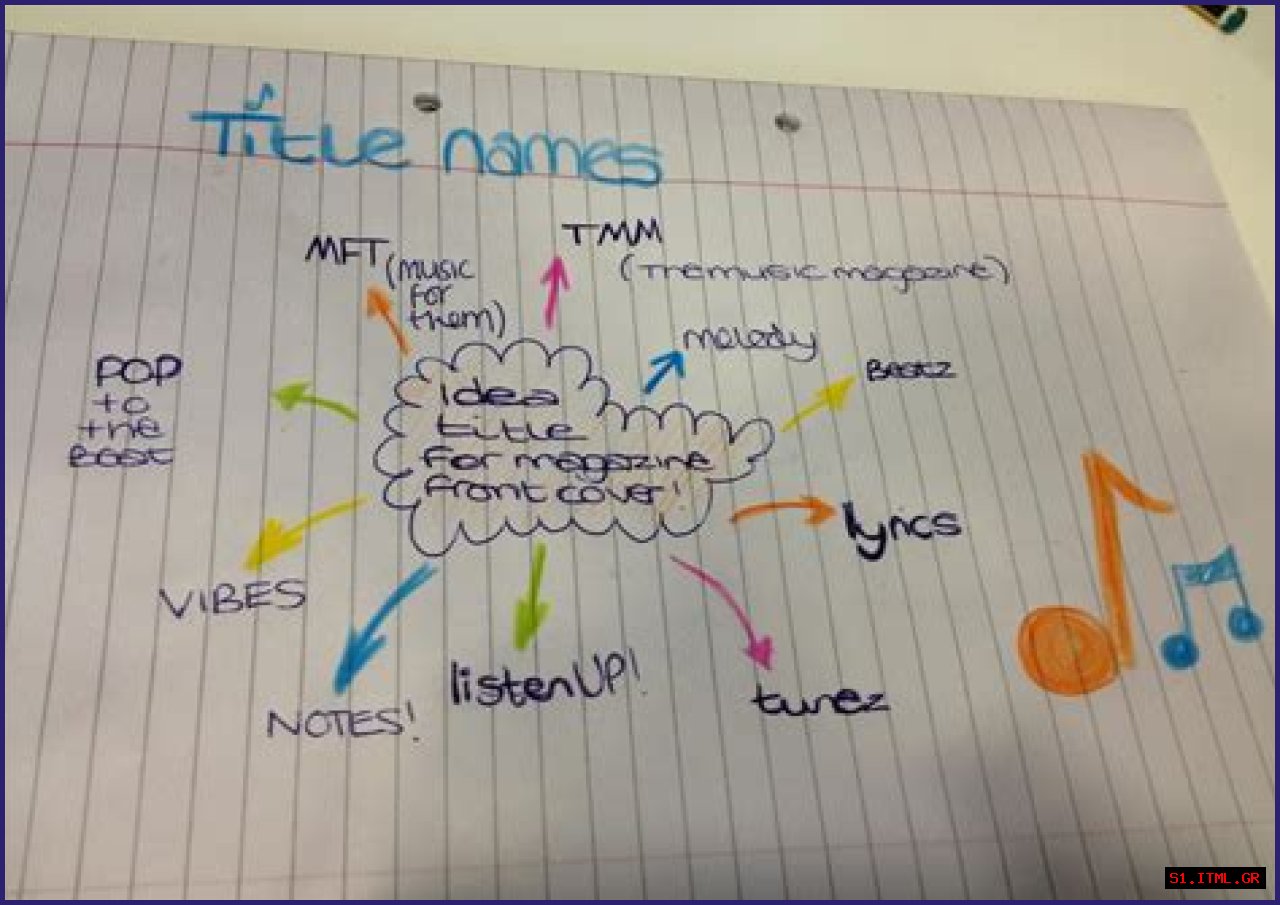 Title names
MFT (music
for
them)
TMM
(The music magazine)
melody
Beatz
POP
to
the
Beat
Idea
title
for magazine
front cover!
lyrics
VIBES
NOTES!
listen UP!
tunez
S1.ITML.GR